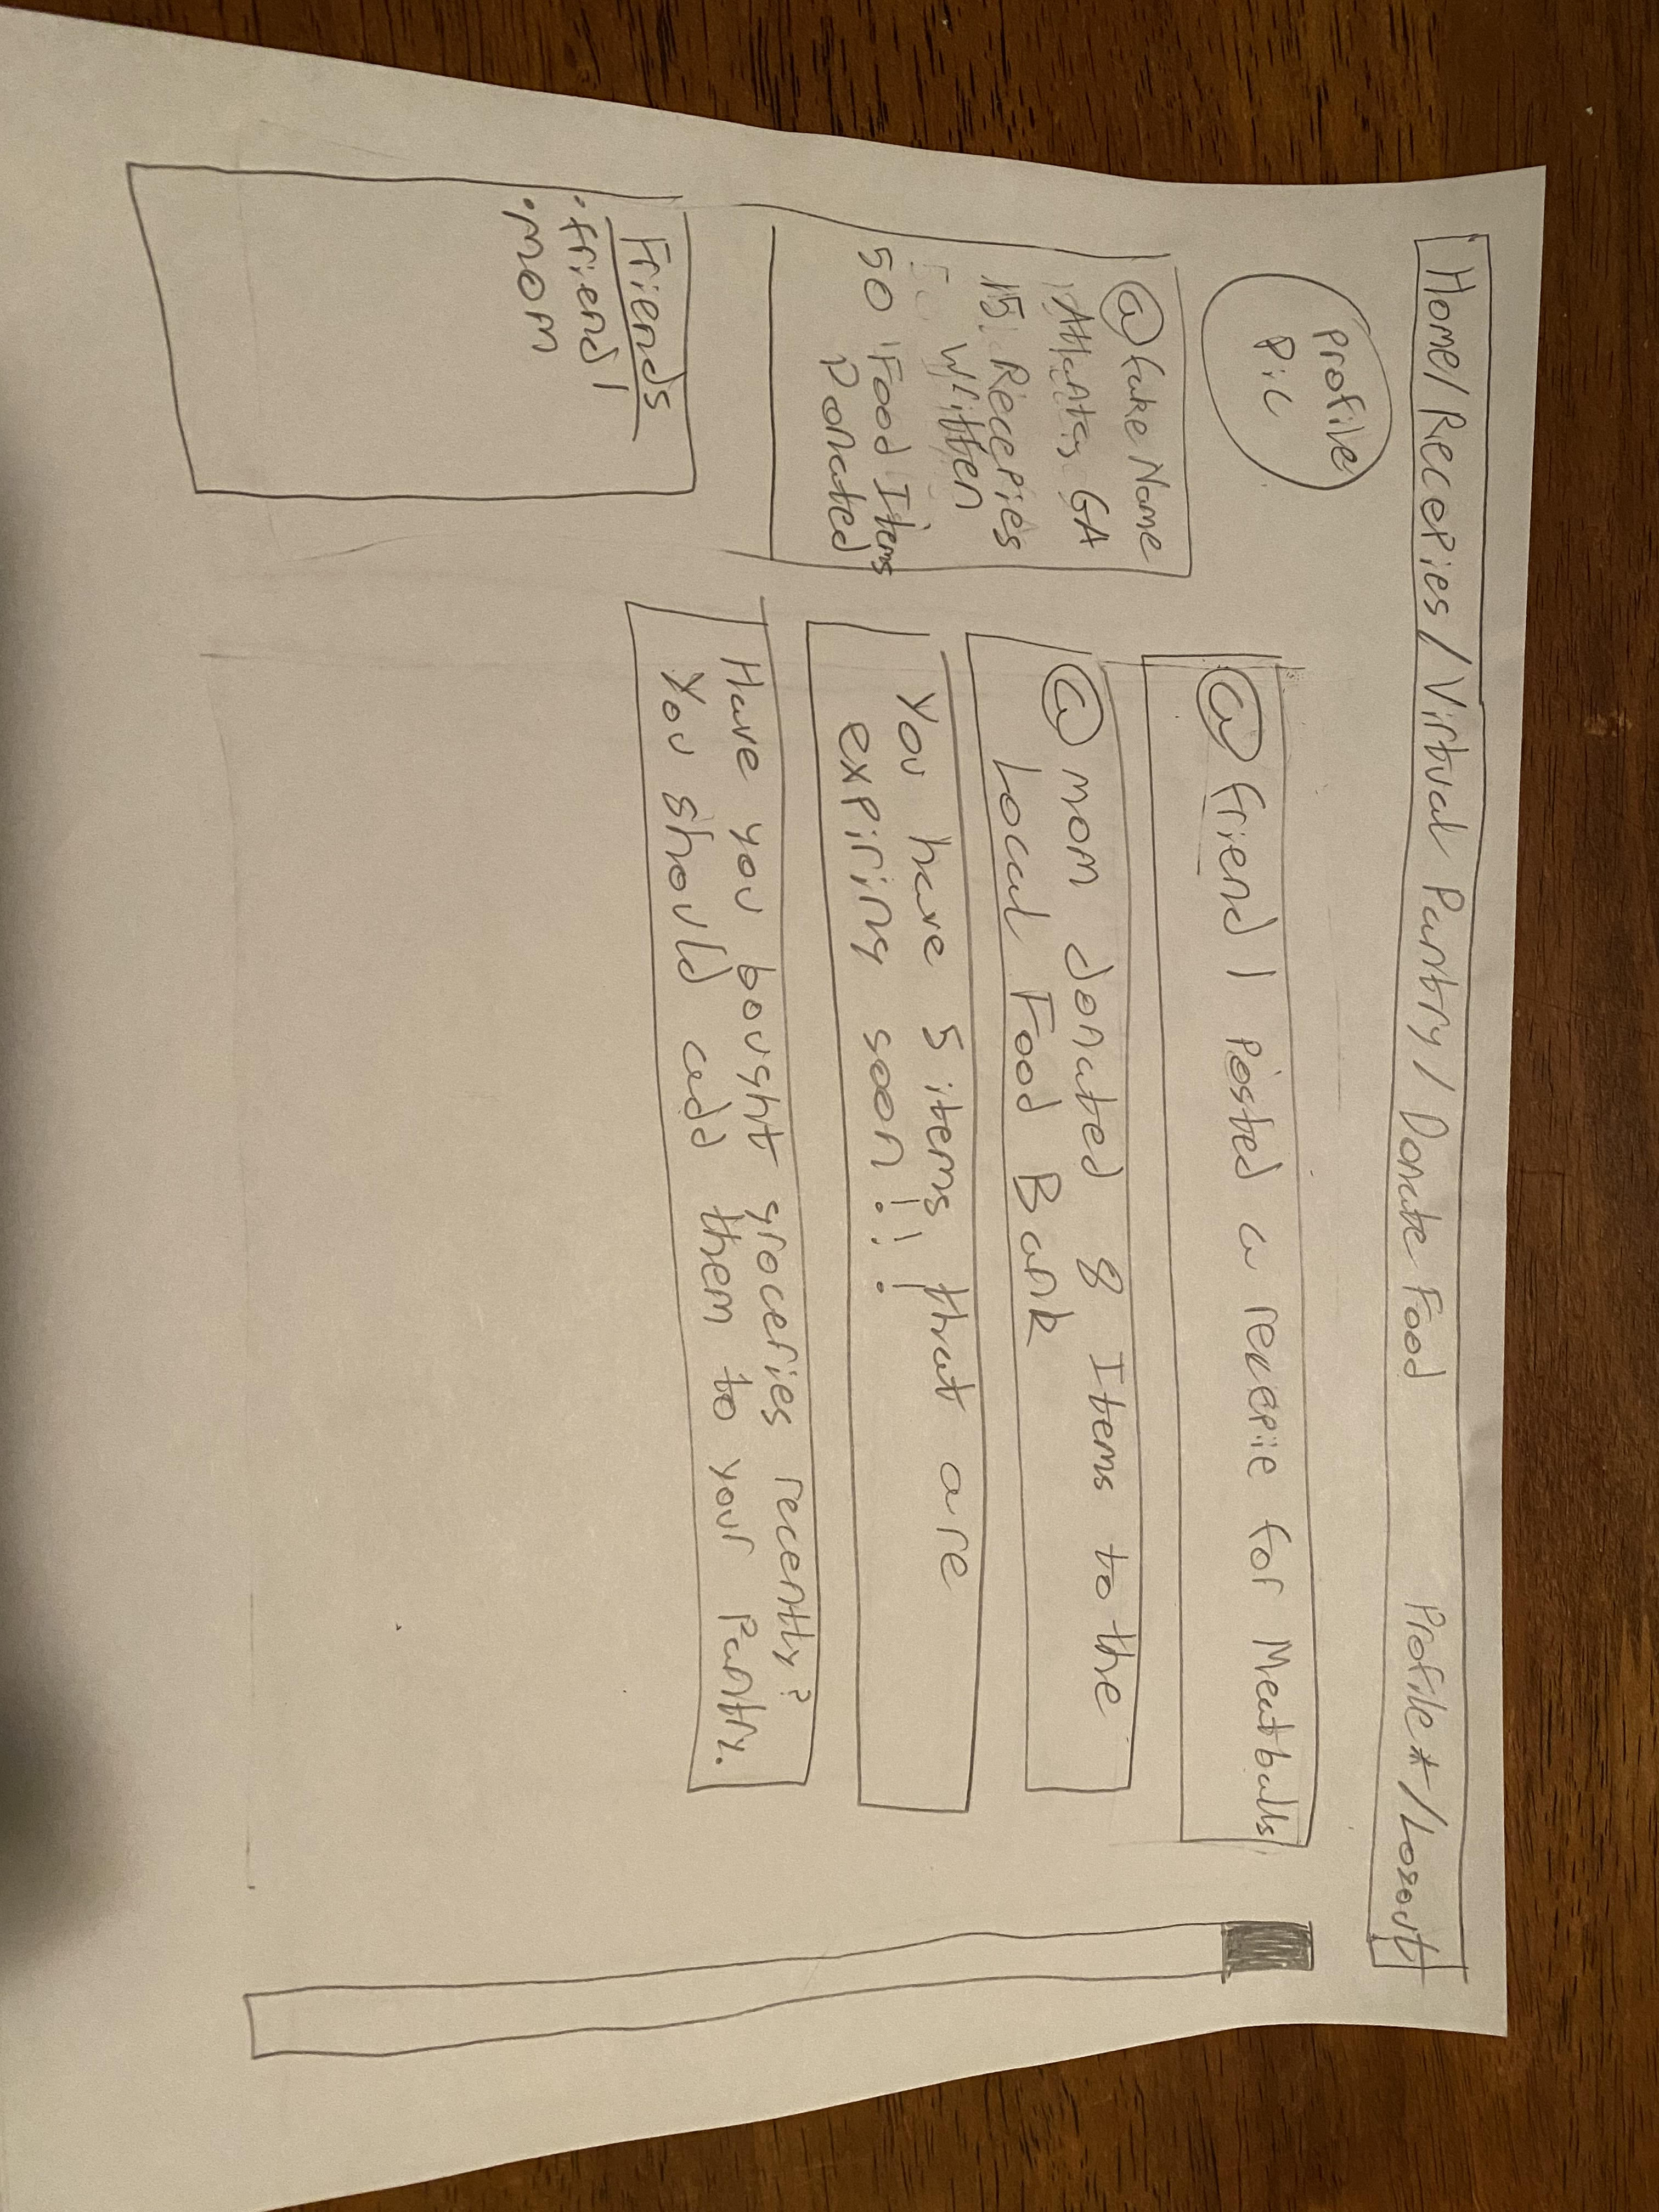 Home/Recepies/Virtual Pantry/Donate Food Profile*/Logout
Profile
Pic
@fake Name
Atlanta, GA
15 Recepies
Written
50 Food Items
Donated
Friends
• friend 1
• mom
@friend 1 Posted a recepie for Meatballs
@mom donated 8 Items to the
Local Food Bank
You have 5 items that are
expiring soon!!!
Have you bought groceries recently?
You should add them to your Pantry.